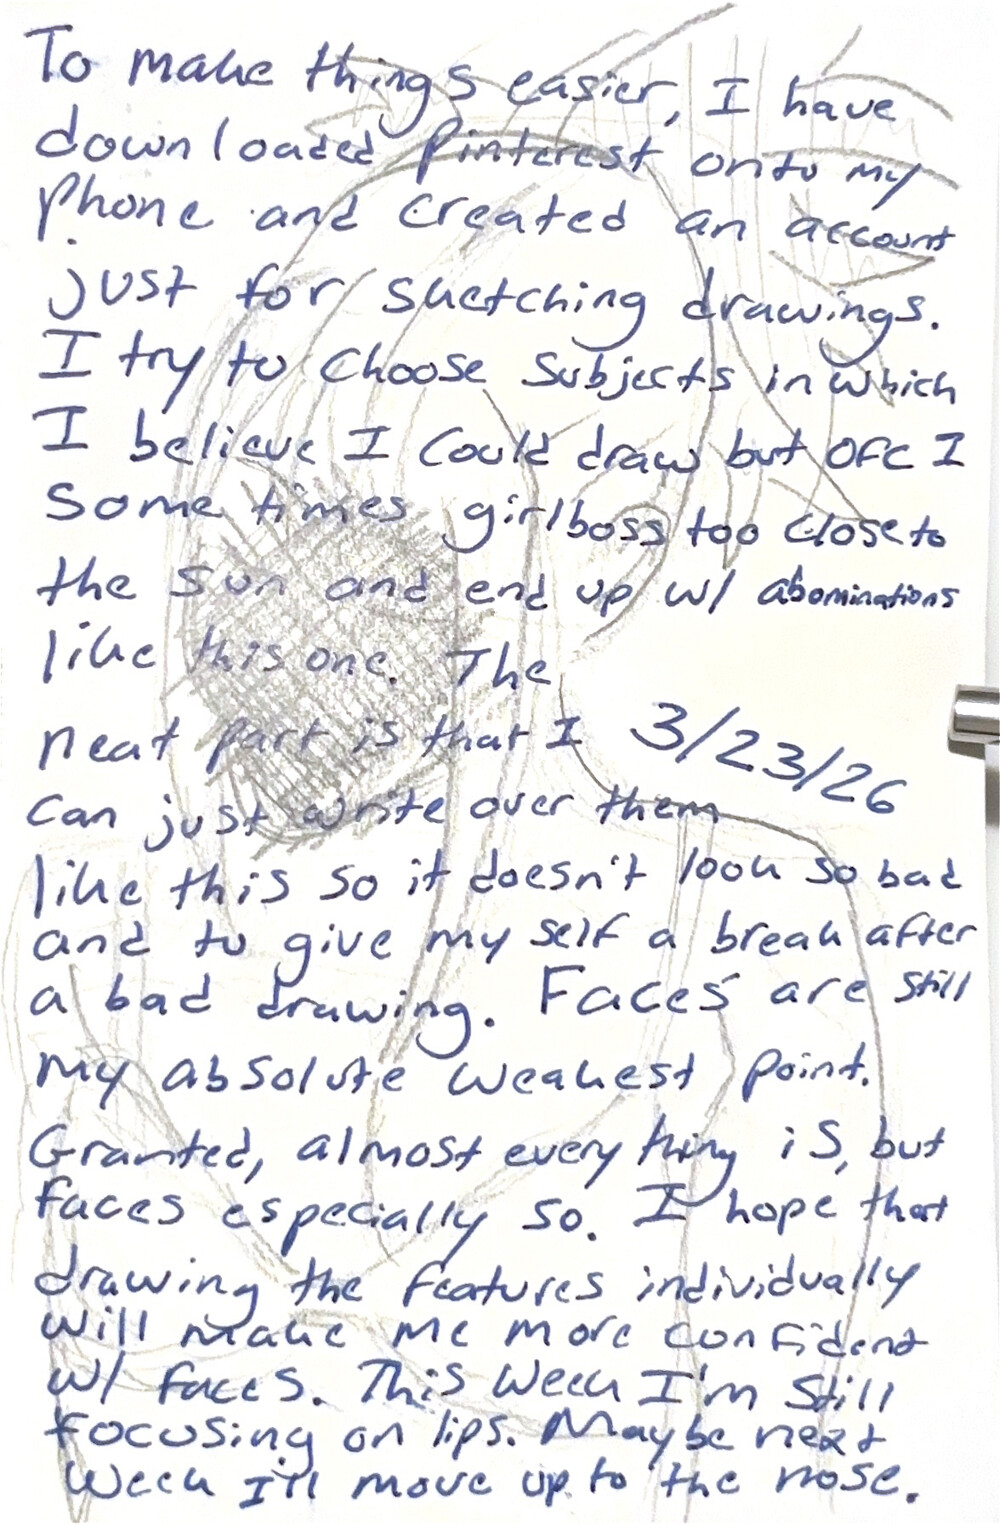 To make things easier, I have
downloaded Pinterest onto my
phone and created an account
just for sketching drawings.
I try to choose subjects in which
I believe I could draw but ofc I
some times girlboss too close to
the sun and end up w/ abominations
like this one. The
neat part is that I
3/23/26
can just write over them
like this so it doesn't look so bad
and to give my self a break after
a bad drawing. Faces are still
my absolute weakest point.
Granted, almost every thing is, but
faces especially so. I hope that
drawing the features individually
will make me more confident
w/ faces. This week I'm still
focusing on lips. Maybe next
week I'll move up to the nose.